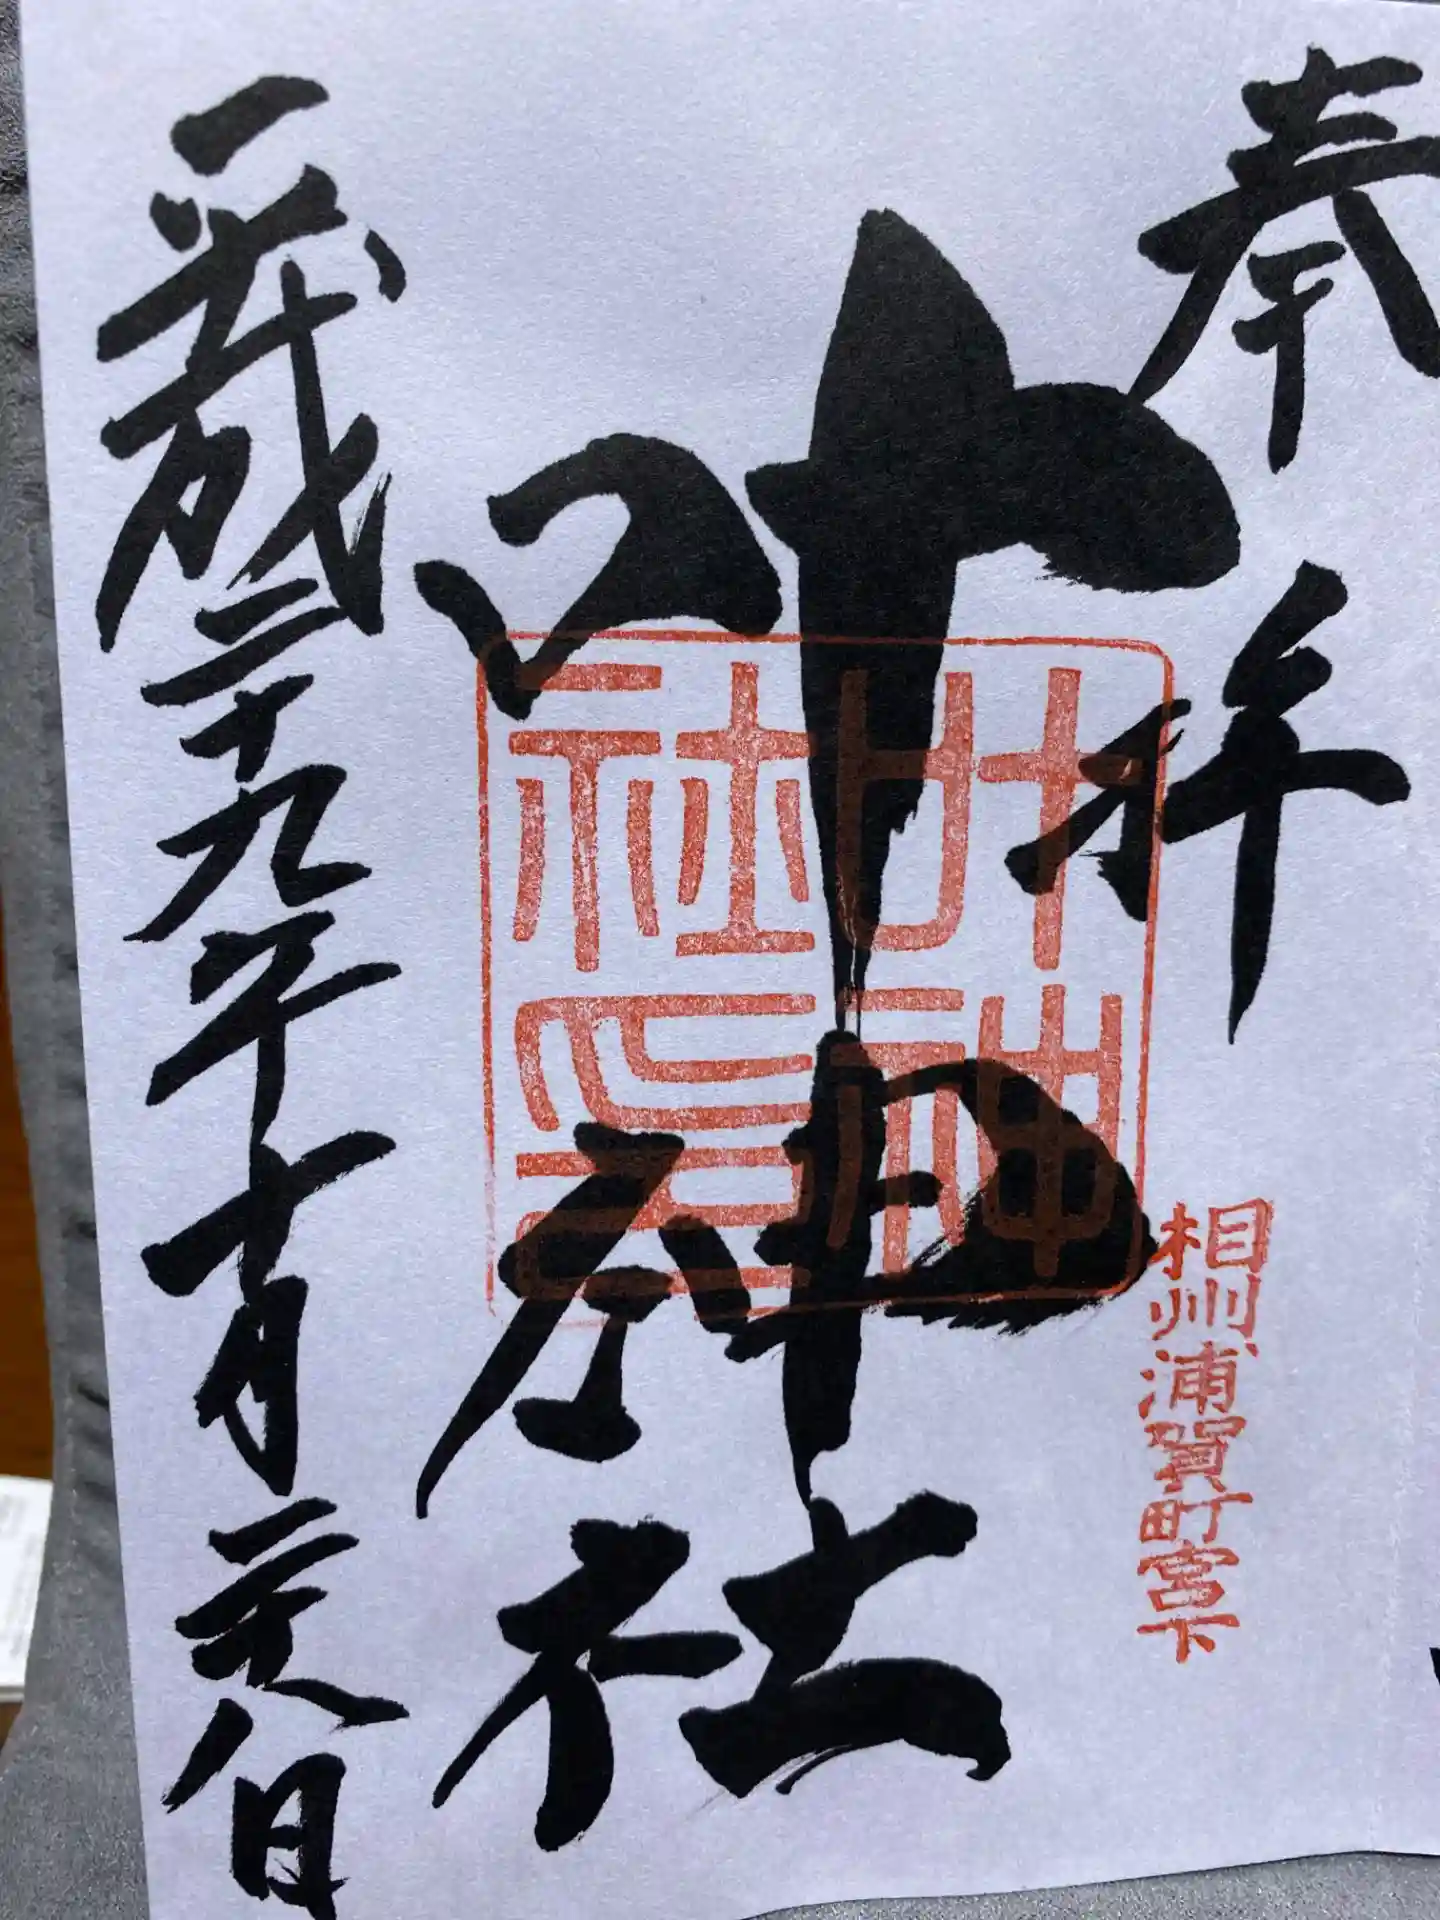 奉拝
叶神社
叶神社印
相州浦賀町宮下
平成二十九年十月二十八日